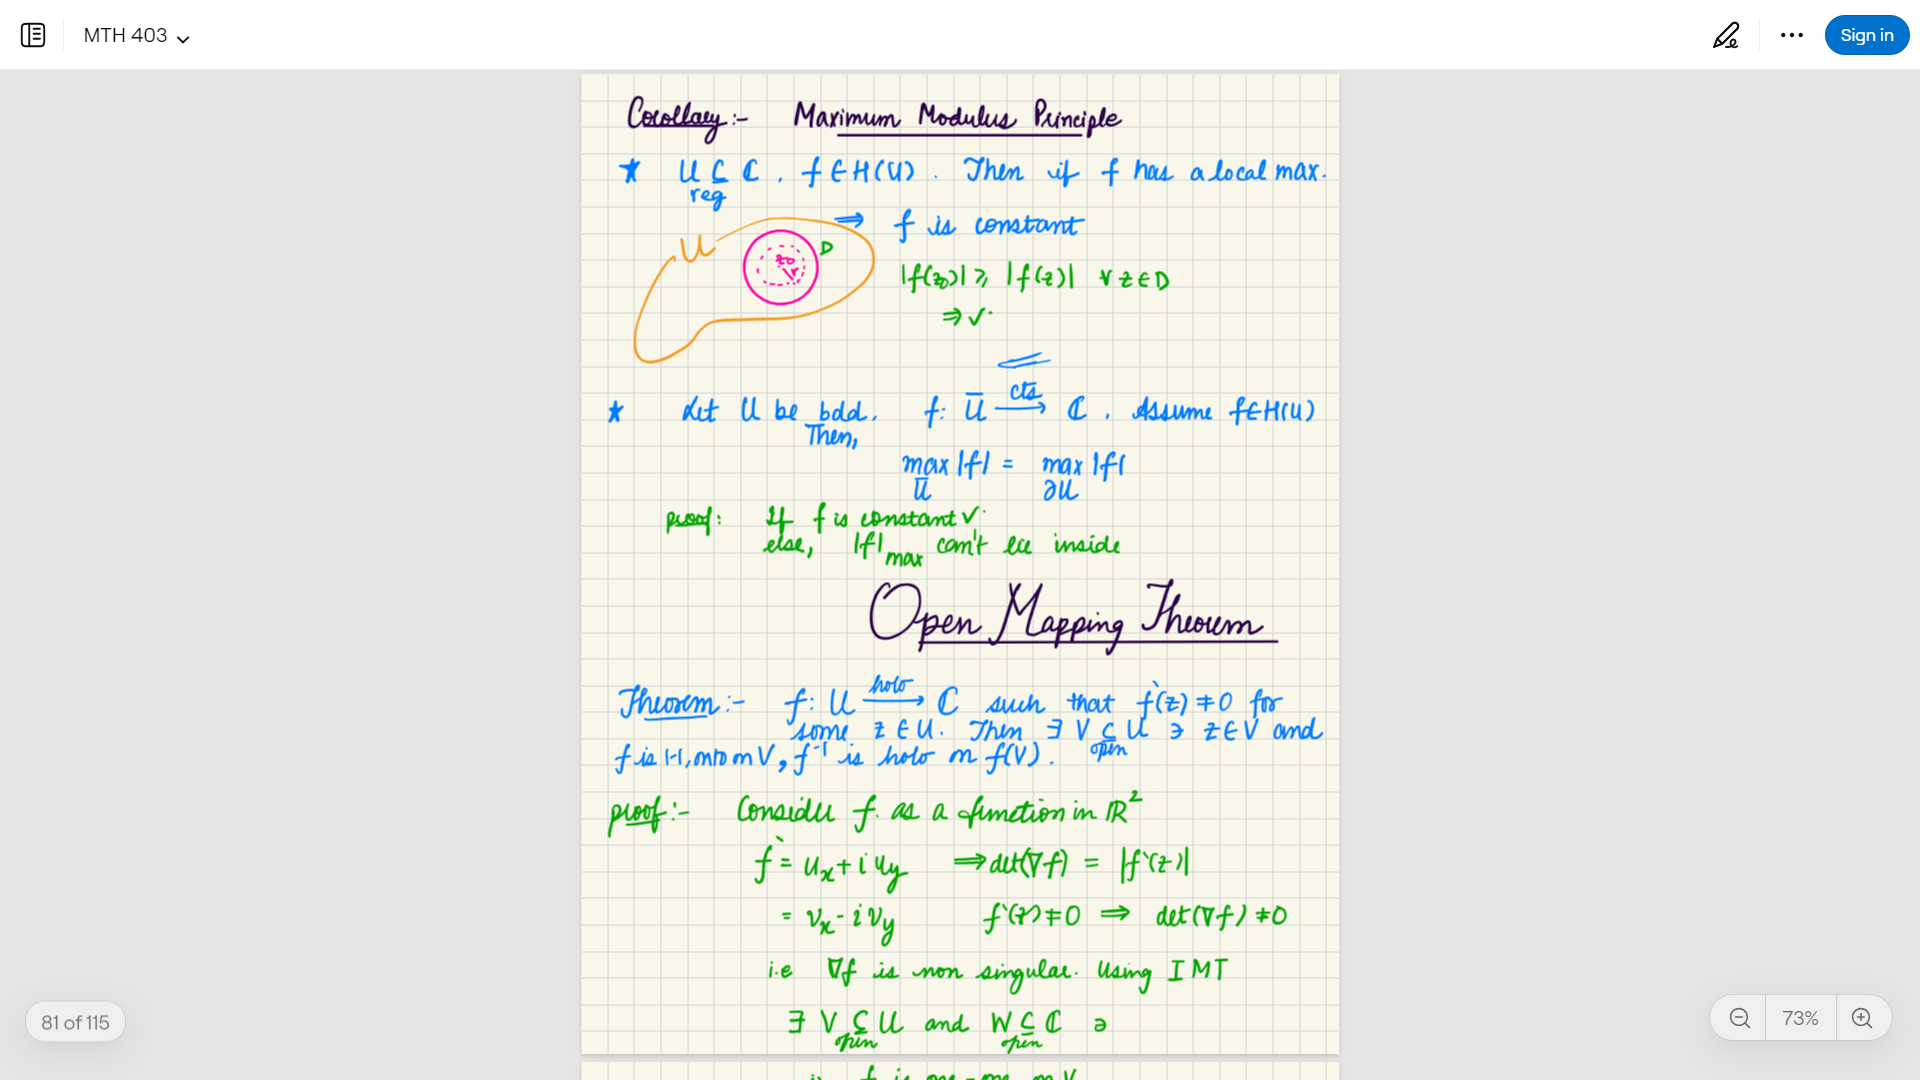 MTH 403
Sign in
Corollary :- Maximum Modulus Principle
★ U ⊆ ℂ, f ∈ H(U). Then if f has a local max.
reg
⟹ f is constant
U
D
z₀
r
|f(z₀)| ≥ |f(z)| ∀ z ∈ D
⇒ ✓.
★ Let U be bdd. f: Ū ⟶ ℂ. Assume f∈H(U)
cts
Then,
max |f| = max |f|
Ū ∂U
proof: If f is constant ✓.
else, |f|max can't lie inside
Open Mapping Theorem
Theorem :- f: U ⟶ ℂ such that f`(z) ≠ 0 for
holo
some z ∈ U. Then ∃ V ⊆ U ∋ z ∈ V and
open
f is 1-1, onto on V, f⁻¹ is holo on f(V).
proof :- Consider f as a function in ℝ²
f` = uₓ + i u_y ⟹ det(∇f) = |f`(z)|
= vₓ - i v_y f`(z) ≠ 0 ⟹ det(∇f) ≠ 0
i.e ∇f is non singular. Using IMT
∃ V ⊆ U and W ⊆ ℂ ∋
open open
f is one-one on V
81 of 115
73%